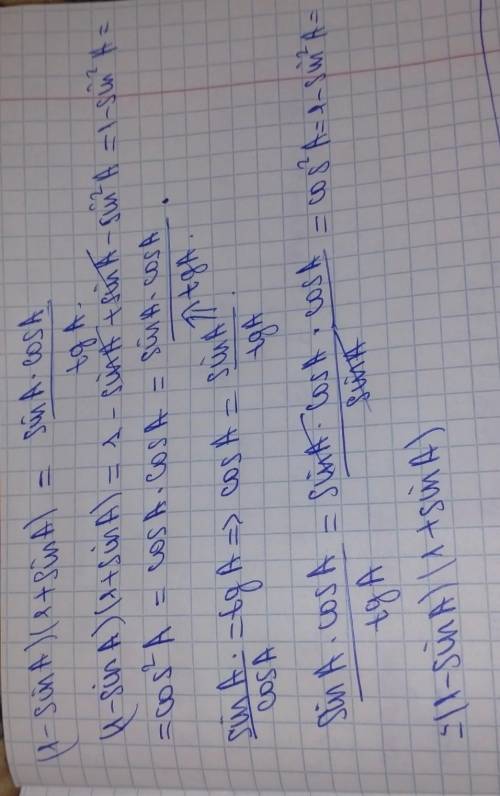 (1 - sinA)(1 + sinA) = sinA · cosA / tgA.
(1 - sinA)(1 + sinA) = 1 - sinA + sinA - sin²A = 1 - sin²A =
= cos²A = cosA · cosA = sinA · cosA / tgA.
sinA / cosA = tgA => cosA = sinA / tgA.
sinA · cosA / tgA = sinA · cosA · cosA / sinA = cos²A = 1 - sin²A =
= (1 - sinA)(1 + sinA)